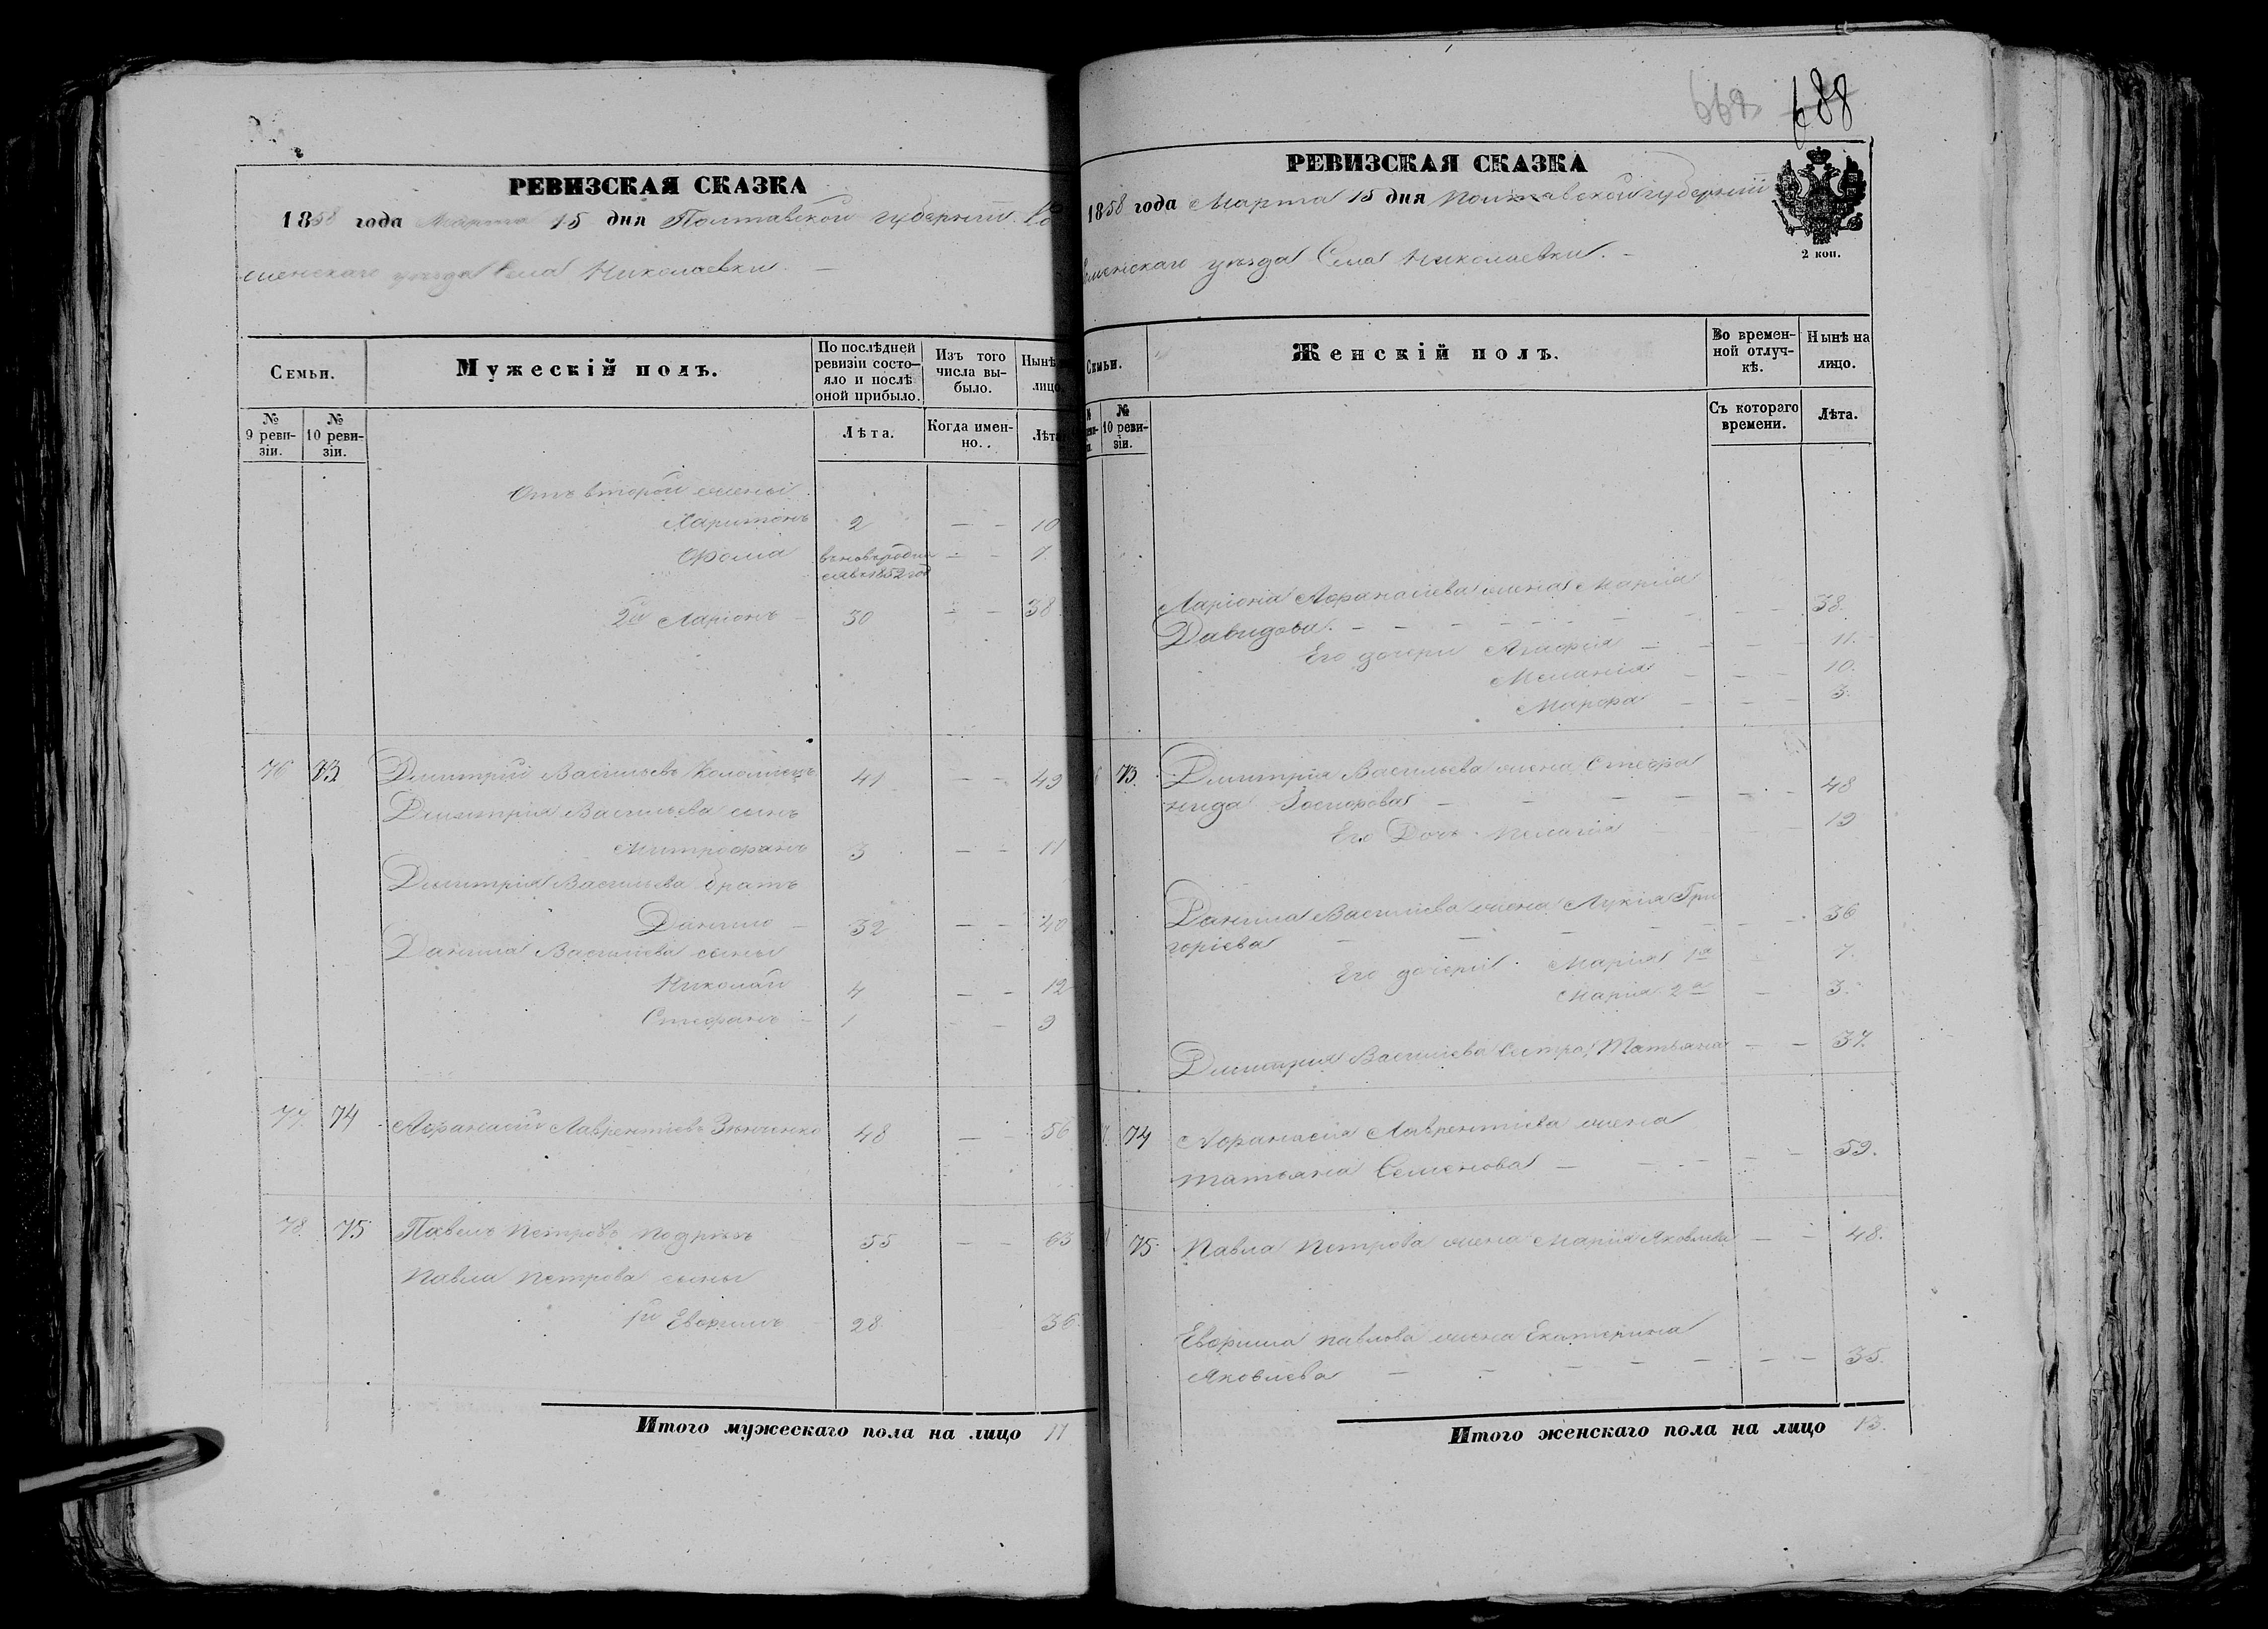 РЕВИЗСКАЯ СКАЗКА
1858 года Марта 15 дня Полтавской губернии Ро
менскаго уезда Села Николаевки.
Семьи.
Мужескій полъ.
По послѣдней ревизіи состояло и послѣ оной прибыло.
Изъ того числа выбыло.
Нынѣ
лицо
№ 9 ревизіи.
№ 10 ревизіи.
Лѣта.
Когда именно..
Лѣта
Отъ второй жены
Харитонъ 2 — - 10
Фома
1852 год — - 7
2й Ларіонъ - 30 — - 38
76 73 Дмитрій Васильевъ Коломіецъ 41 — - 49
Дмитрія Васильева сынъ
Митрофанъ 3 — - 11
Дмитрія Васильева братъ
Данило - 32 — - 40
Данила Василіева сыны
Николай 4 — - 12
Стефанъ - 1 — - 9
77. 74 Афанасій Лаврентіевъ Зѣнченко 48 — - 56
78. 75 Павелъ Петровъ 55 — - 63
Павла Петрова сыны
1й Евфимъ 28 36
Итого мужескаго пола на лицо 11
688
РЕВИЗСКАЯ СКАЗКА
1858 года Марта 15 дня Полтавской губерніи
менскаго уезда Села Николаевки. -
2 коп.
Семьи.
Женскій полъ.
Во временной отлучкѣ.
Нынѣ на лицо.
№ 10 ревизіи.
Съ котораго времени.
Лѣта.
Ларіона Афанасіева жена Марія
Давидова. - - - 38.
Его дочери Агафія - 11.
Меланія - 10.
Марфа - 3.
73. Дмитрія Васильева жена Стефа
нида - - - 48
Его Дочь Пелагія 19
Данила Василіева жена Лукія Гри
горіева - - - 36
Его дочери. Марія 1я 7.
Марія 2я 3.
Дмитрія Василіева Сестра Татьяна - - 37.
74 Афанасія Лаврентіева жена
Татьяна Семенова - - - 59.
75. Павла Петрова жена Марія Яковлева - - 48.
Евфима Павлова жена Екатерина
Яковлева - - - 35.
Итого женскаго пола на лицо 13.